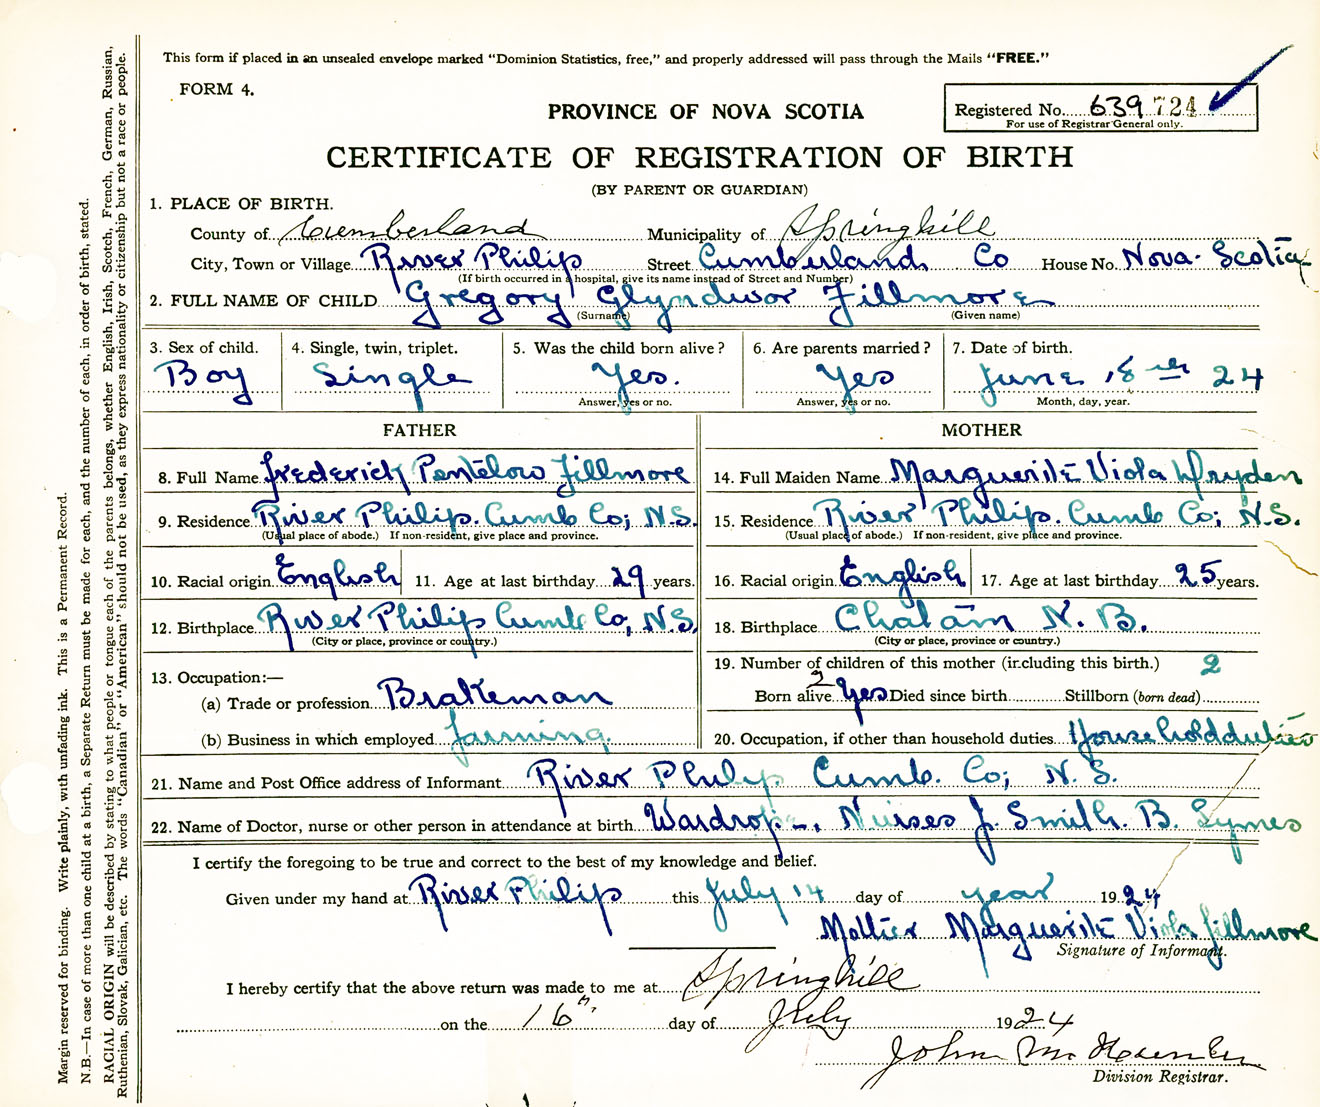 This form if placed in an unsealed envelope marked "Dominion Statistics, free," and properly addressed will pass through the Mails "FREE."
FORM 4.
PROVINCE OF NOVA SCOTIA
Registered No. 639724
For use of Registrar General only.
CERTIFICATE OF REGISTRATION OF BIRTH
(BY PARENT OR GUARDIAN)
1. PLACE OF BIRTH.
County of Cumberland Municipality of Springhill
City, Town or Village River Philip Street Cumberland Co House No. Nova-Scotia
(If birth occurred in a hospital, give its name instead of Street and Number)
2. FULL NAME OF CHILD Gregory Glyndwor Fillmore
(Surname) (Given name)
3. Sex of child. 4. Single, twin, triplet. 5. Was the child born alive? 6. Are parents married? 7. Date of birth.
Boy Single Yes. Yes June 18 24
Answer, yes or no. Answer, yes or no. Month, day, year.
FATHER MOTHER
8. Full Name Frederick Pentelow Fillmore 14. Full Maiden Name Marguerite Viola Dryden
9. Residence River Philip. Cumb Co; N.S. 15. Residence River Philip. Cumb Co; N.S.
(Usual place of abode.) If non-resident, give place and province. (Usual place of abode.) If non-resident, give place and province.
10. Racial origin English 11. Age at last birthday 29 years. 16. Racial origin English 17. Age at last birthday 25 years.
12. Birthplace River Philip Cumb Co, N.S. 18. Birthplace Chatam N. B.
(City or place, province or country.) (City or place, province or country.)
13. Occupation:— 19. Number of children of this mother (including this birth.) 2
(a) Trade or profession Brakeman Born alive 2 Yes Died since birth Stillborn (born dead)
(b) Business in which employed farming. 20. Occupation, if other than household duties Household duties
21. Name and Post Office address of Informant River Philip Cumb. Co; N. S.
22. Name of Doctor, nurse or other person in attendance at birth Wardrop-, Nurses J. Smith. B. Symes
I certify the foregoing to be true and correct to the best of my knowledge and belief.
Given under my hand at River Philip this July 14 day of year 1924
Mother Marguerite Viola Fillmore
Signature of Informant.
I hereby certify that the above return was made to me at Springhill
on the 16th day of July 1924
John
Division Registrar.
Margin reserved for binding. Write plainly, with unfading ink. This is a Permanent Record.
N.B.—In case of more than one child at a birth, a Separate Return must be made for each, and the number of each, in order of birth, stated.
RACIAL ORIGIN will be described by stating to what people or tongue each of the parents belongs, whether English, Irish, Scotch, French, German, Russian,
Ruthenian, Slovak, Galician, etc. The words "Canadian" or "American" should not be used, as they express nationality or citizenship but not a race or people.